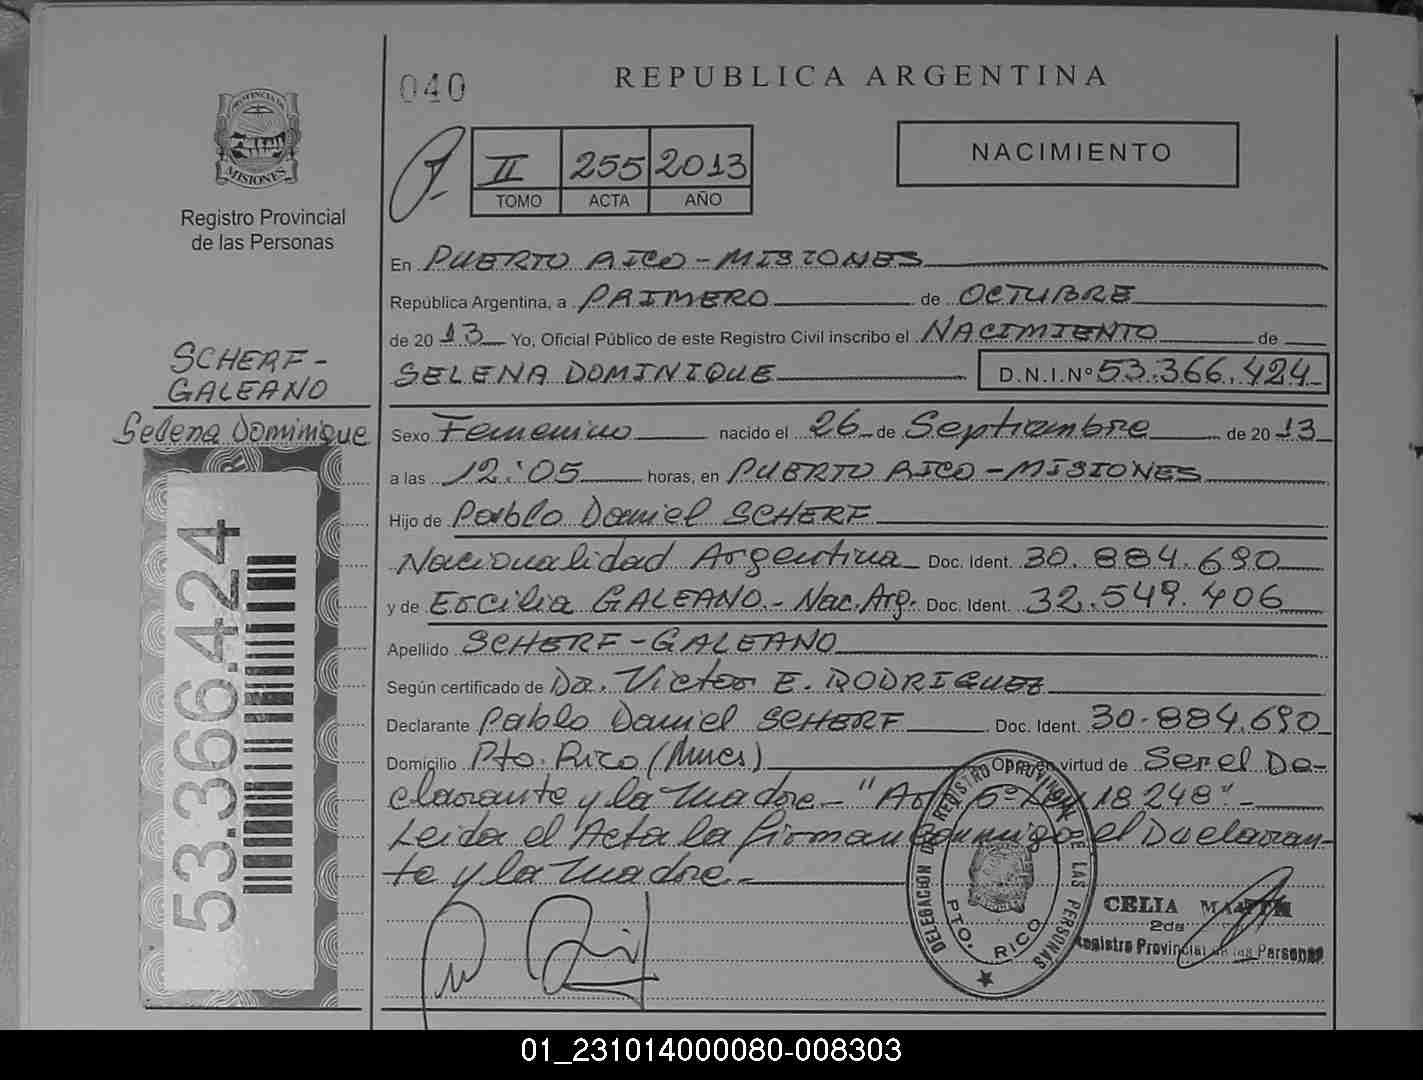 040
REPUBLICA ARGENTINA
PROVINCIA DE
MISIONES
Registro Provincial
de las Personas
II 255 2013
TOMO ACTA AÑO
NACIMIENTO
En PUERTO RICO - MISIONES
República Argentina, a PRIMERO de OCTUBRE
de 2013 Yo, Oficial Público de este Registro Civil inscribo el NACIMIENTO de
SELENA DOMINIQUE D.N.I.Nº 53.366.424
SCHERF-
GALEANO
Selena Dominique
Sexo Femenino nacido el 26 de Septiembre de 2013
a las 12:05 horas, en PUERTO RICO - MISIONES
Hijo de Pablo Daniel SCHERF
Nacionalidad Argentina Doc. Ident. 30.884.690
y de Ercilia GALEANO - Nac. Arg. Doc. Ident. 32.549.406
Apellido SCHERF - GALEANO
Según certificado de Dr. Victor E. RODRIGUEZ
Declarante Pablo Daniel SCHERF Doc. Ident. 30.884.690
Domicilio Pto. Rico (Mnes) Obra en virtud de Ser el De-
clarante y la madre - "Art. 5º Ley 18248" -
Leida el Acta la firman conmigo el Declaran-
te y la madre -
53.366.424
DELEGACION DEL REGISTRO PROVINCIAL DE LAS PERSONAS
PTO. RICO
CELIA
2da
Registro Provincial de las Personas
01_231014000080-008303